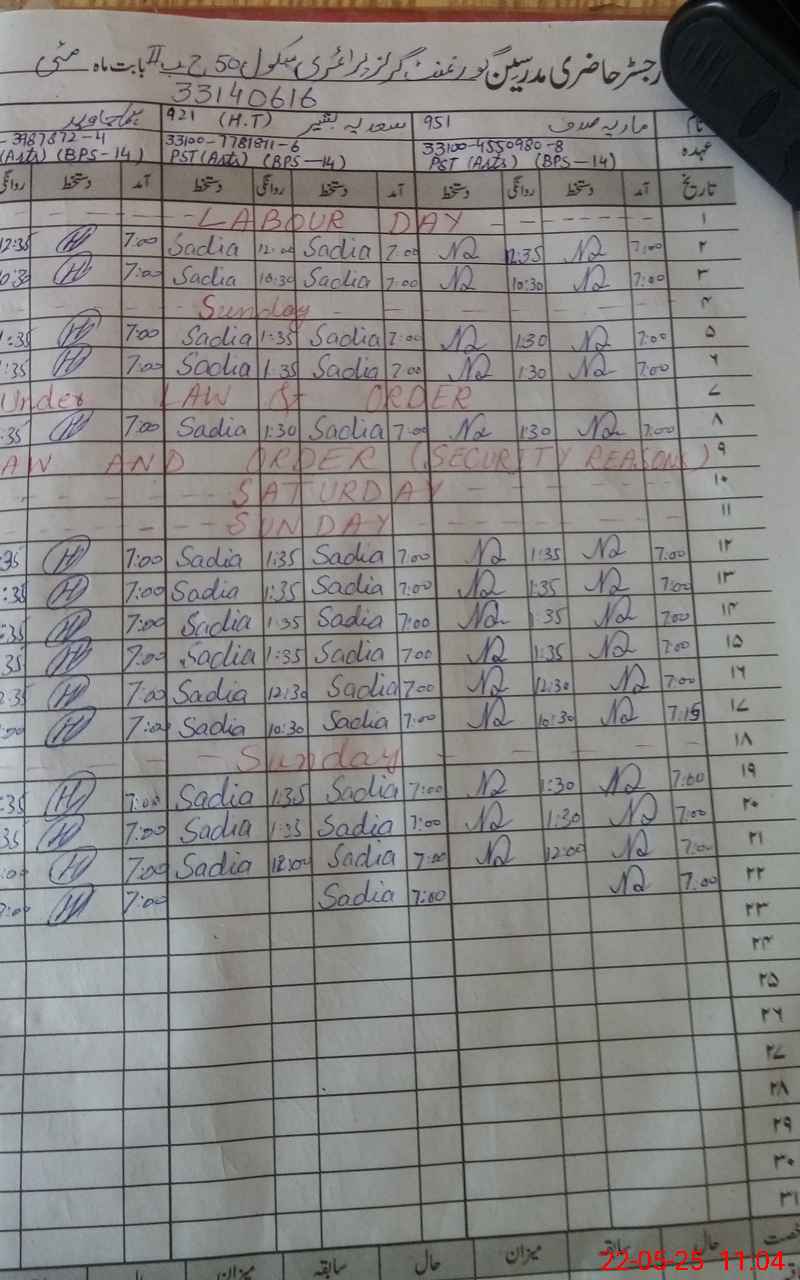 رجسٹر حاضری مدرسین گورنمنٹ گرلز پرائمری سکول 50 ج ب II بابت ماہ مئی
33140616
نام ماریہ صدف 951 سعدیہ بشیر (H.T) 921
عہدہ 33100-4550980-8 33100-7781871-6 3987872-4
PST (Arts) (BPS-14) PST (Arts) (BPS-14) (Arts) (BPS-14)
تاریخ آمد دستخط روانگی دستخط آمد دستخط روانگی دستخط آمد دستخط روانگی
۱ LABOUR DAY
۲ 7:00 N2 12:35 N2 7:00 Sadia 12:00 Sadia 7:00 H 12:35
۳ 7:00 N2 10:30 N2 7:00 Sadia 10:30 Sadia 7:00 H 0:30
۴ Sunday
۵ 7:00 N2 1:30 N2 7:00 Sadia 1:35 Sadia 7:00 H 1:35
۶ 7:00 N2 1:30 N2 7:00 Sadia 1:35 Sadia 7:00 H :35
۷ Under LAW & ORDER
۸ 7:00 N2 1:30 N2 7:00 Sadia 1:30 Sadia 7:00 H 35
۹ AW AND ORDER (SECURITY REASONS)
۱۰ SATURDAY
۱۱ SUNDAY
۱۲ 7:00 N2 1:35 N2 7:00 Sadia 1:35 Sadia 7:00 H :35
۱۳ 7:00 N2 1:35 N2 7:00 Sadia 1:35 Sadia 7:00 H :35
۱۴ 7:00 N2 1:35 N2 7:00 Sadia 1:35 Sadia 7:00 H :35
۱۵ 7:00 N2 1:35 N2 7:00 Sadia 1:35 Sadia 7:00 H 35
۱۶ 7:00 N2 12:30 N2 7:00 Sadia 12:30 Sadia 7:00 H 2:35
۱۷ 7:15 N2 10:30 N2 7:00 Sadia 10:30 Sadia 7:00 H :00
۱۸ Sunday
۱۹ 7:00 N2 1:30 N2 7:00 Sadia 1:35 Sadia 7:00 H :35
۲۰ 7:00 N2 1:30 N2 7:00 Sadia 1:35 Sadia 7:00 H 35
۲۱ 7:00 N2 12:00 N2 7:00 Sadia 12:00 Sadia 7:00 H :00
۲۲ 7:00 N2 7:00 Sadia 7:00 H :00
۲۳
۲۴
۲۵
۲۶
۲۷
۲۸
۲۹
۳۰
۳۱
حال سابقہ میزان حال سابقہ میزان
22-05-25 11:04